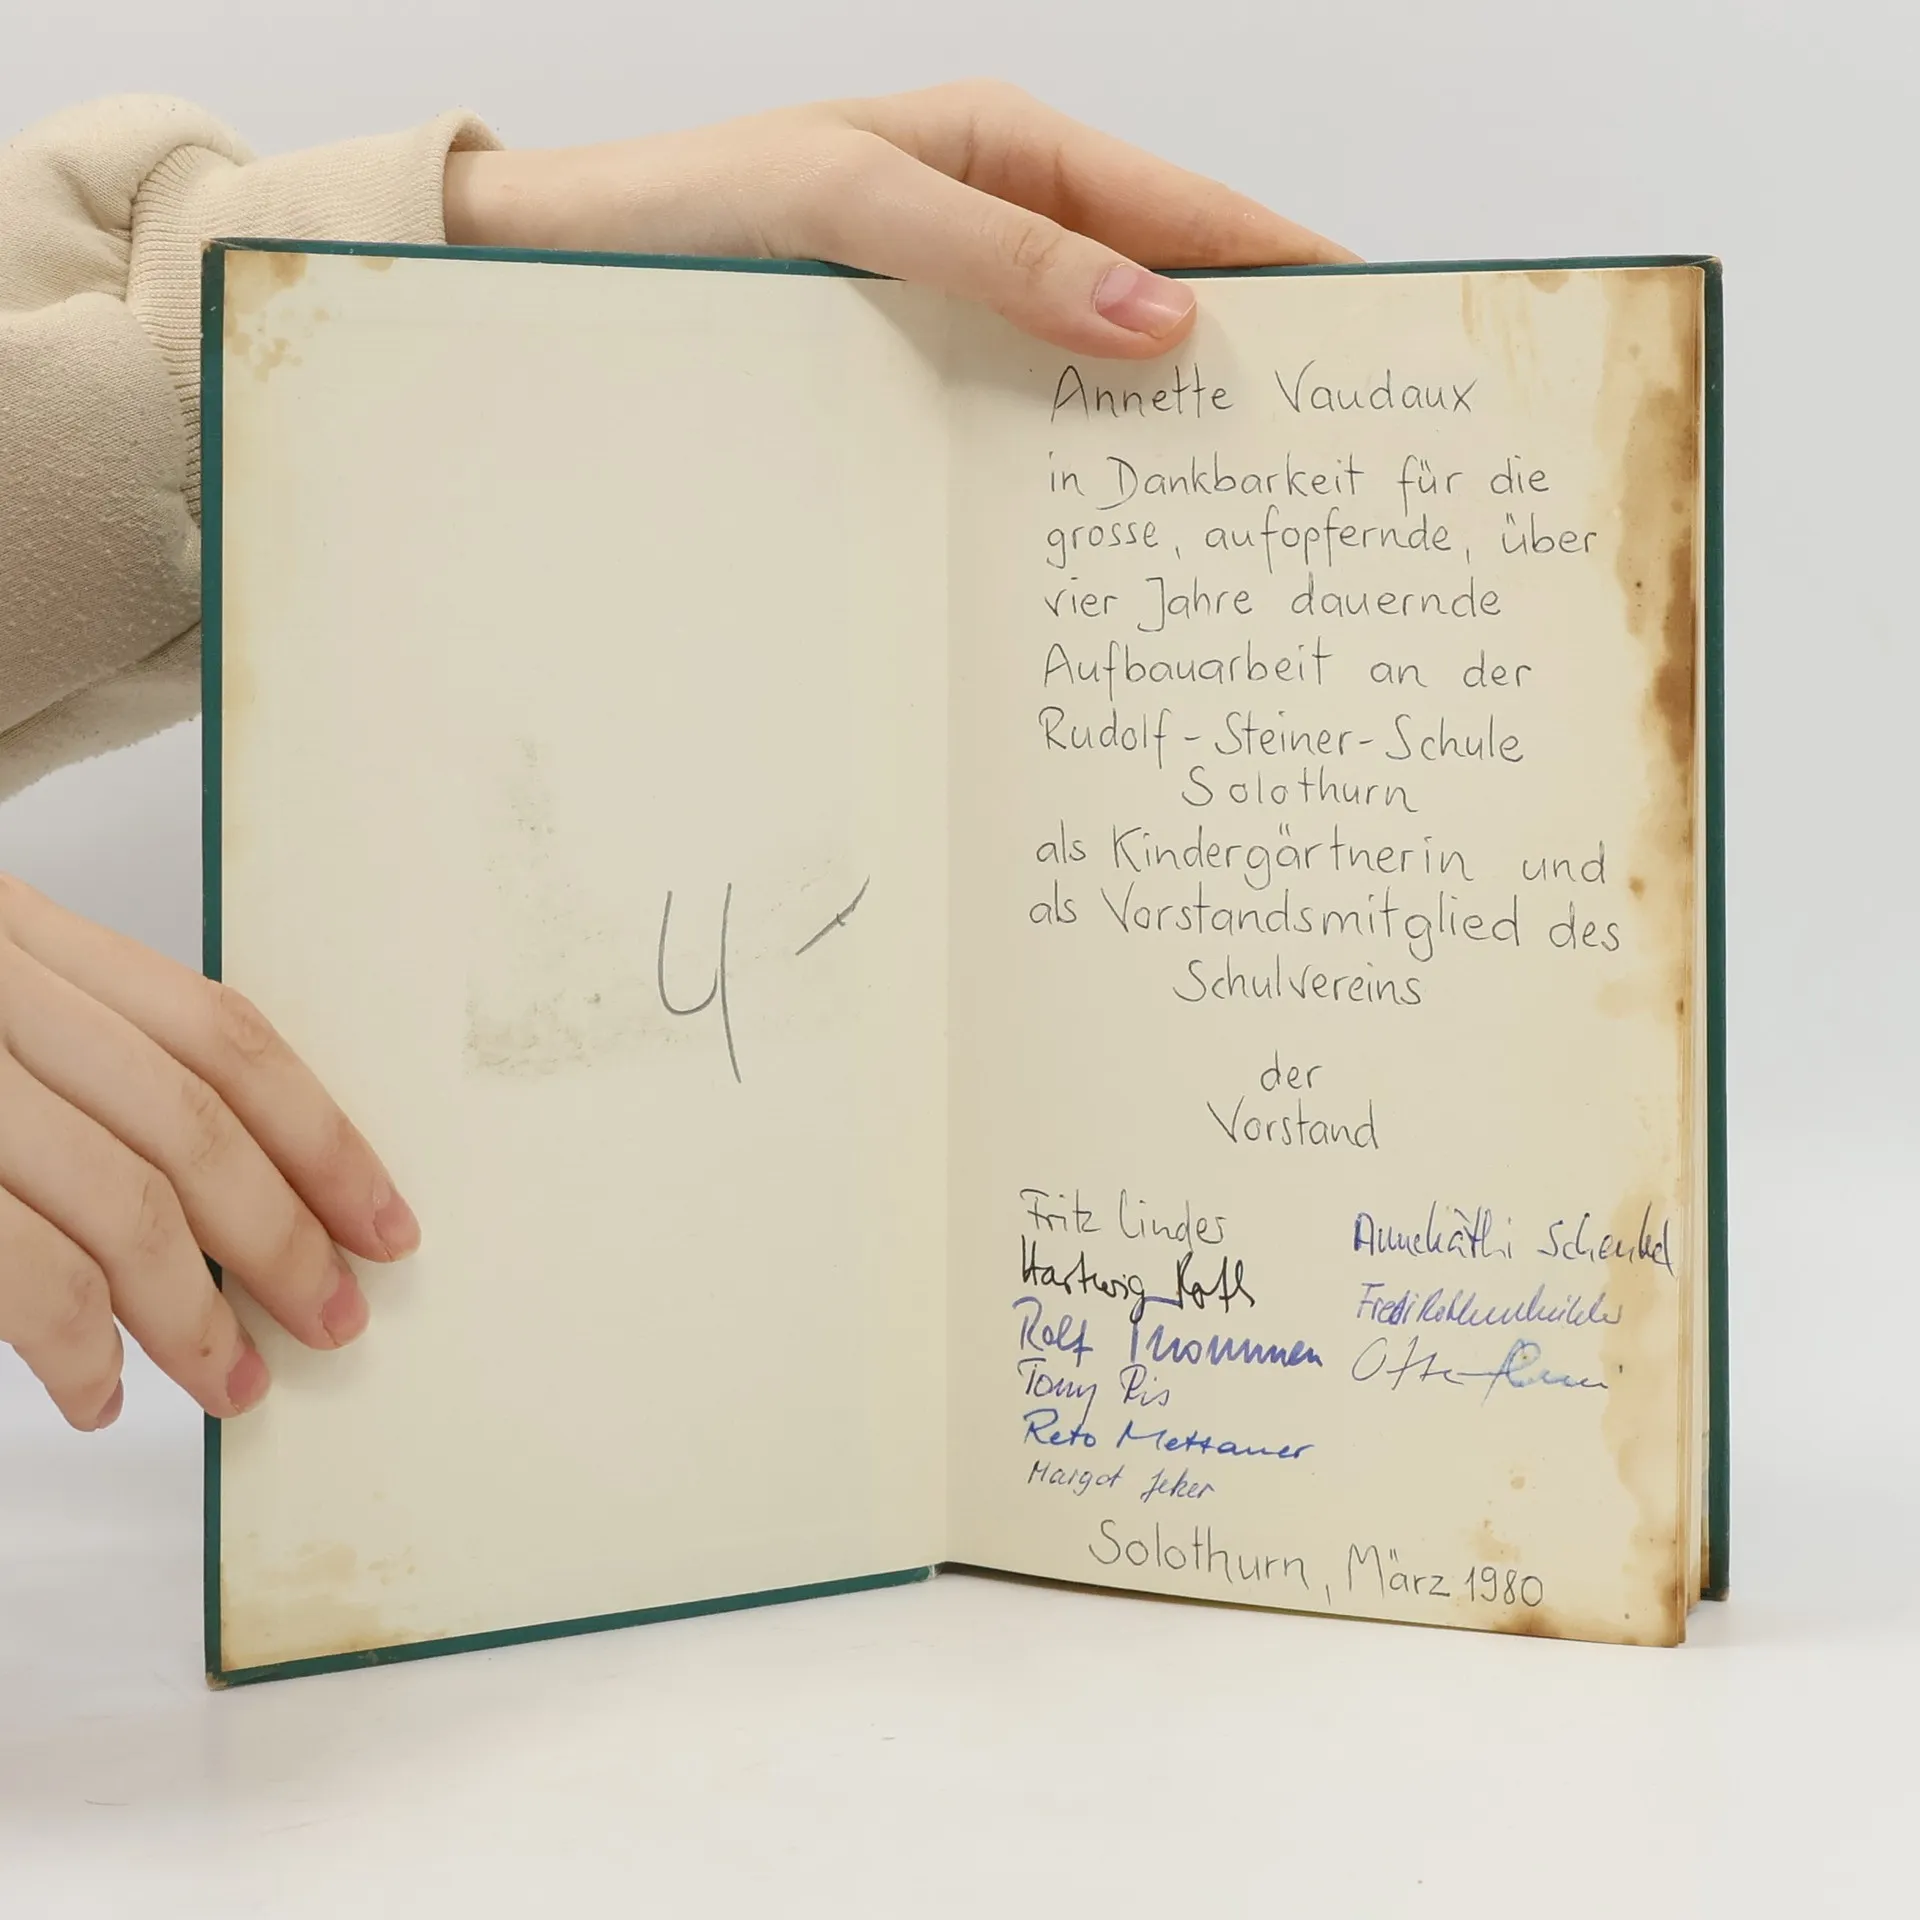 4 -
Annette Vaudaux
in Dankbarkeit für die
grosse, aufopfernde, über
vier Jahre dauernde
Aufbauarbeit an der
Rudolf-Steiner-Schule
Solothurn
als Kindergärtnerin und
als Vorstandsmitglied des
Schulvereins
der
Vorstand
Fritz Linder
Hartwig Roth
Rolf Thommen
Tony Ris
Reto Mettauer
Margot Jeker
Annekäthi Schenkel
Fredi
Solothurn, März 1980